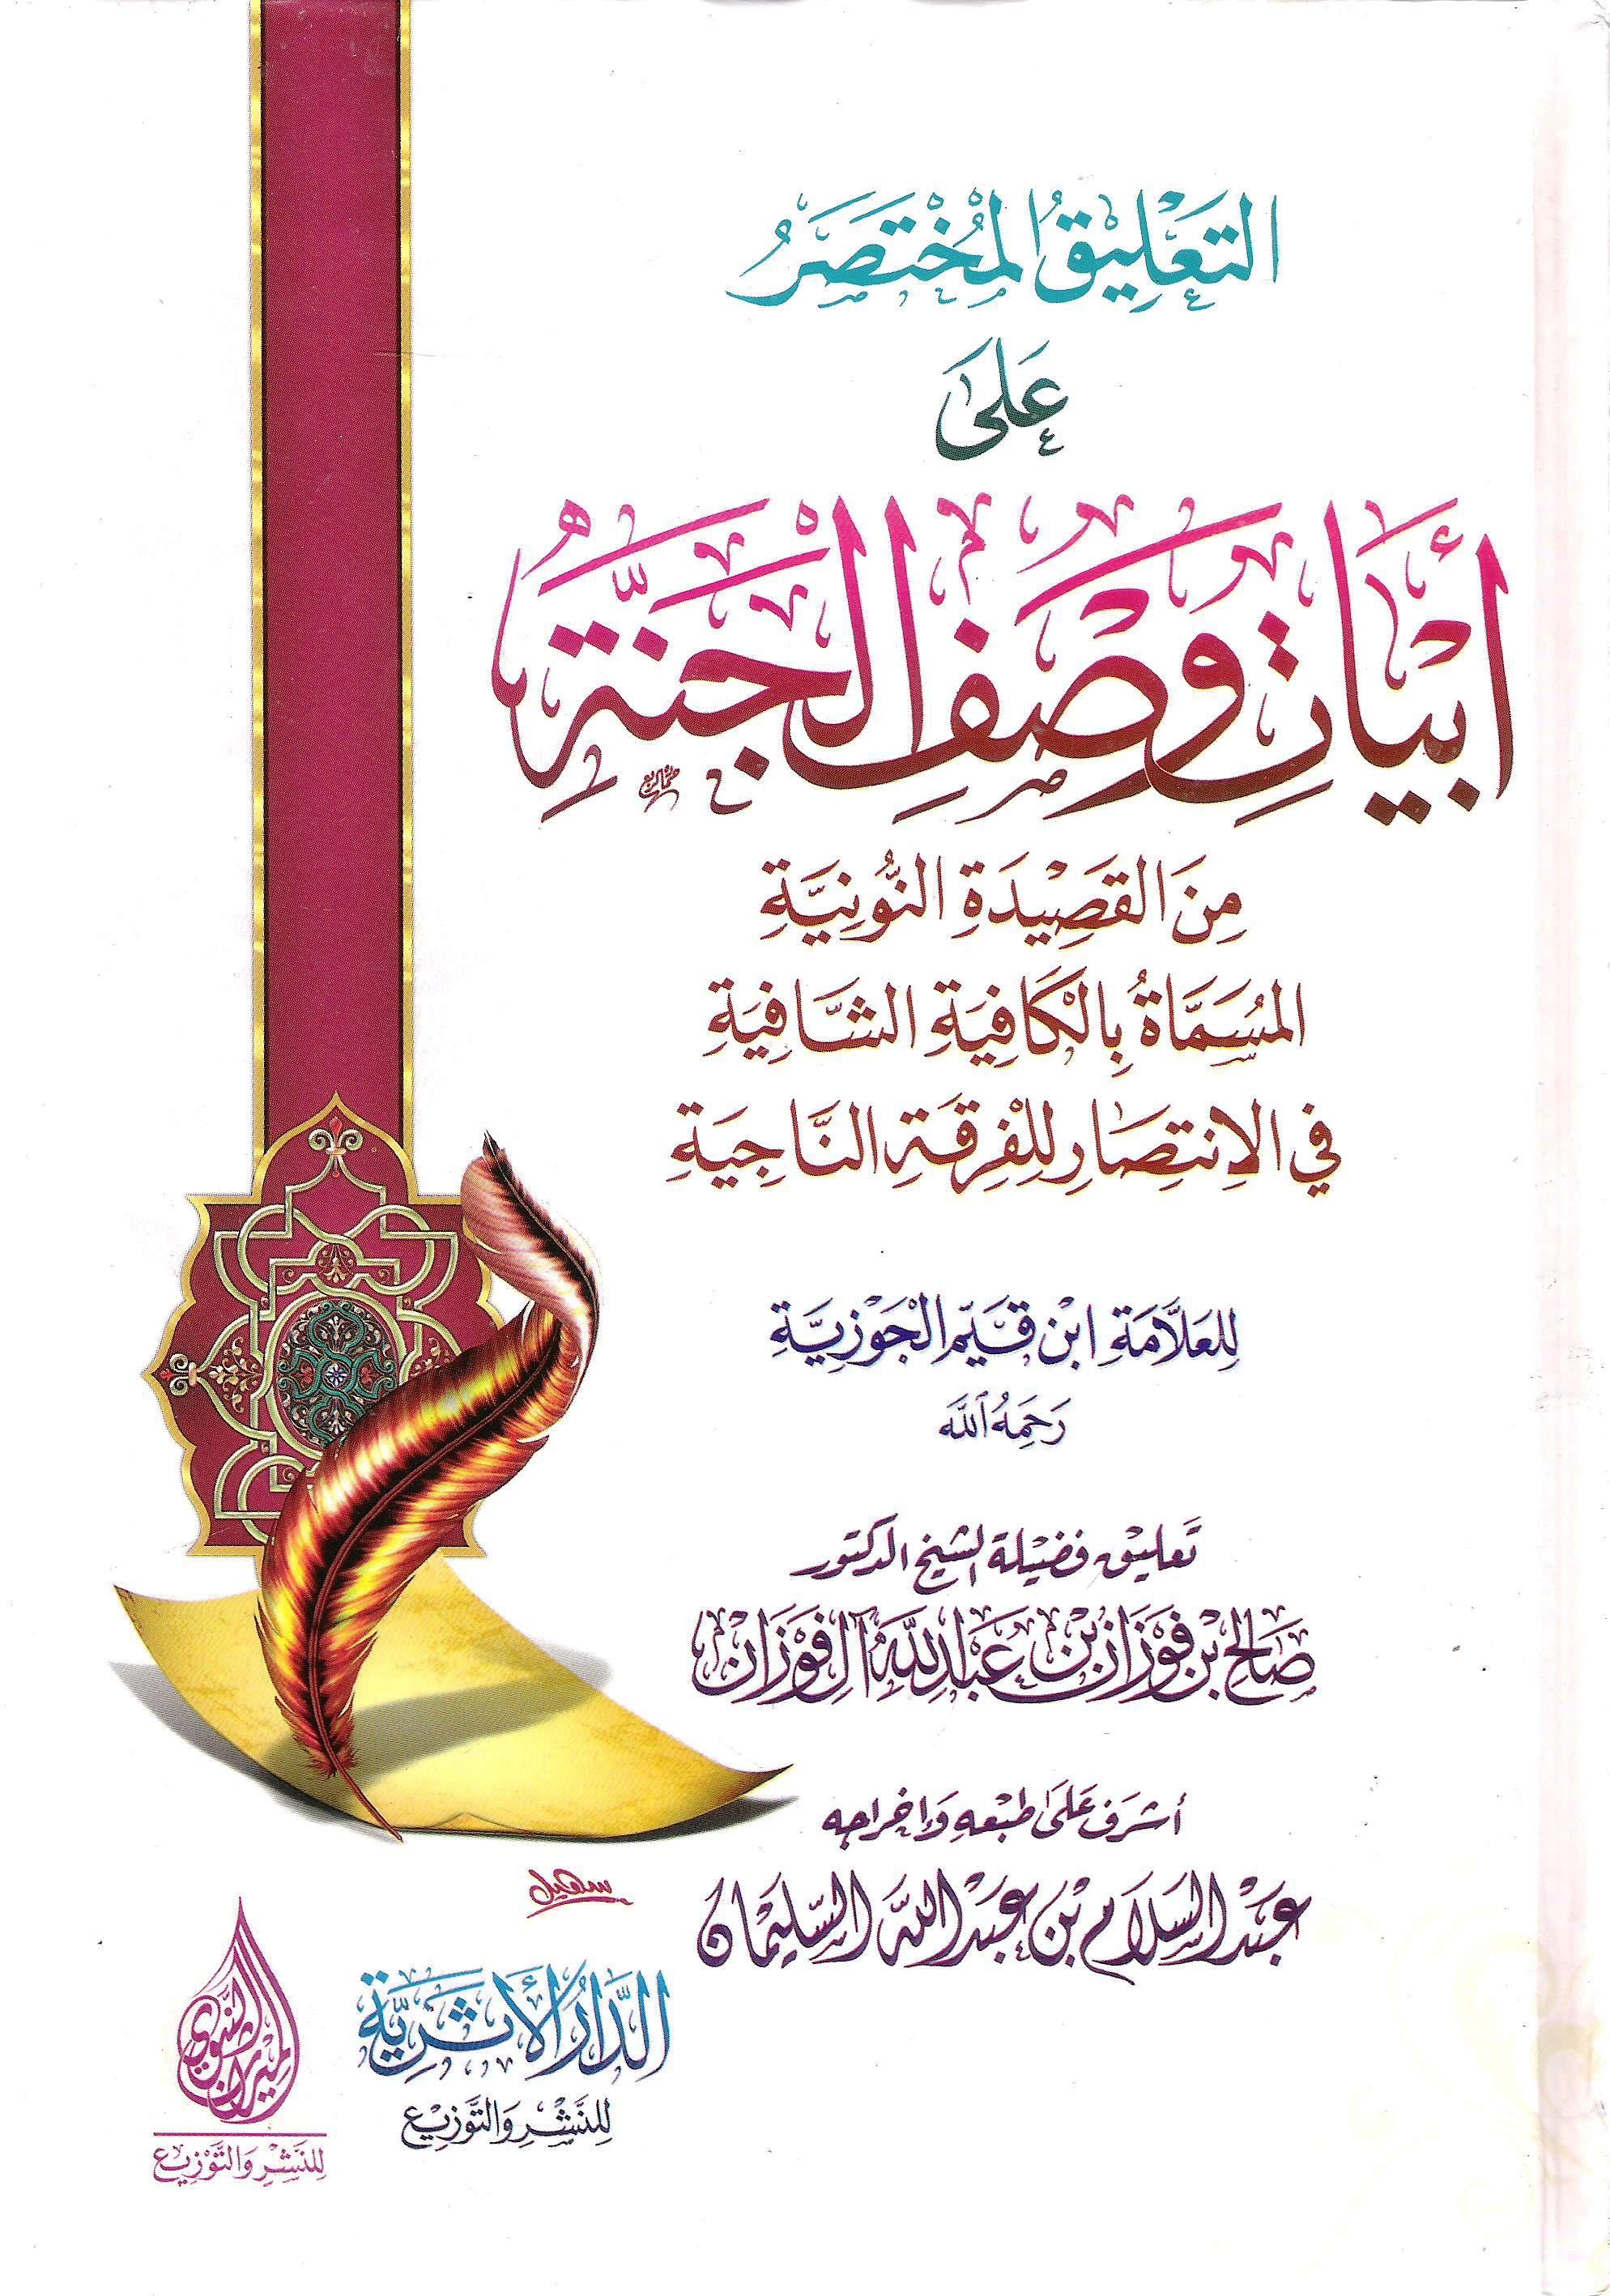 التَعْلِيقُ المُخْتَصَرُ
عَلَى
أَبْيَاتِ وَصْفِ الْجَنَّةِ
مِنَ القَصِيْدَةِ النُّونِيَّةِ
المُسَمَّاةُ بِالْكَافِيَةِ الشَّافِيَةِ
فِي الاِنتِصَارِ لِلْفِرقَةِ النَّاجِيَةِ
لِلعَلاَّمَةِ ابْنِ قَيِّم الْجَوْزِيَّةِ
رَحِمَهُ اللَّه
تَعليق فضيلة الشيخ الدكتور
صَالح بْن فَوْزَان بْن عَبْد اللَّه آل فَوْزَان
أشرَف عَلَى طبْعهِ وَإخراجه
عَبْد السَّلَام بْن عَبْد اللَّه السّلِيمَان
سهيل
الدَّارُ الأَثَرِيَّة
لِلنَّشْرِ وَالتَّوزِيْع
الميراث النبوي
لِلنَّشْرِ وَالتَّوْزِيْع